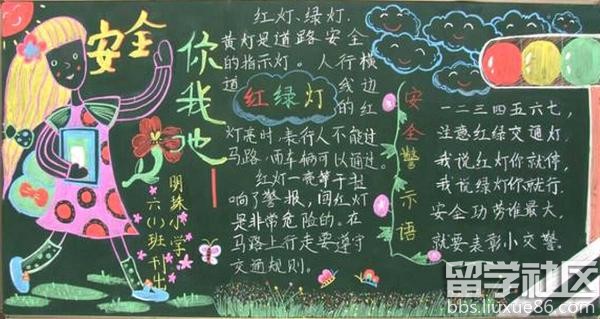 安全
你我他
明珠小学
六(1)班刊出
红灯、绿灯、
黄灯是道路安全
的指示灯。人行横
道 线边
红绿灯
的红
灯亮时,表行人不能过
马路,而车辆可以通过。
红灯一亮等于拉
响了警报,闯红灯
是非常危险的。在
马路上行走要遵守
交通规则。
安全警示语
一二三四五六七,
注意红绿交通灯,
我说红灯你就停,
我说绿灯你就行.
安全功劳谁最大,
就要表彰小交警.
留学社区
bbs.liuxue86.com